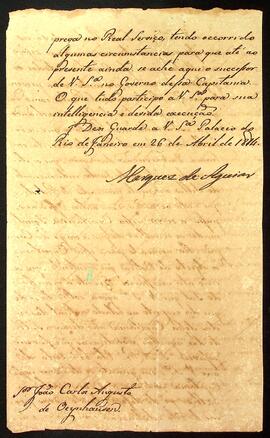 prega no Real Serviço, tendo occorrido
algumas circunstancias para que até ao
presente ainda se ache aqui o successor
de V. S.ª no Governo dessa Capitania.
O que tudo participo a V. S.ª para sua
intelligencia e devida execução.
Deos Guarde a V. S.ª Palacio do
Rio de Janeiro em 26 de Abril de 1814.
Marquez de Aguiar
S.ʳ João Carlos Augusto
de Oeynhausen.